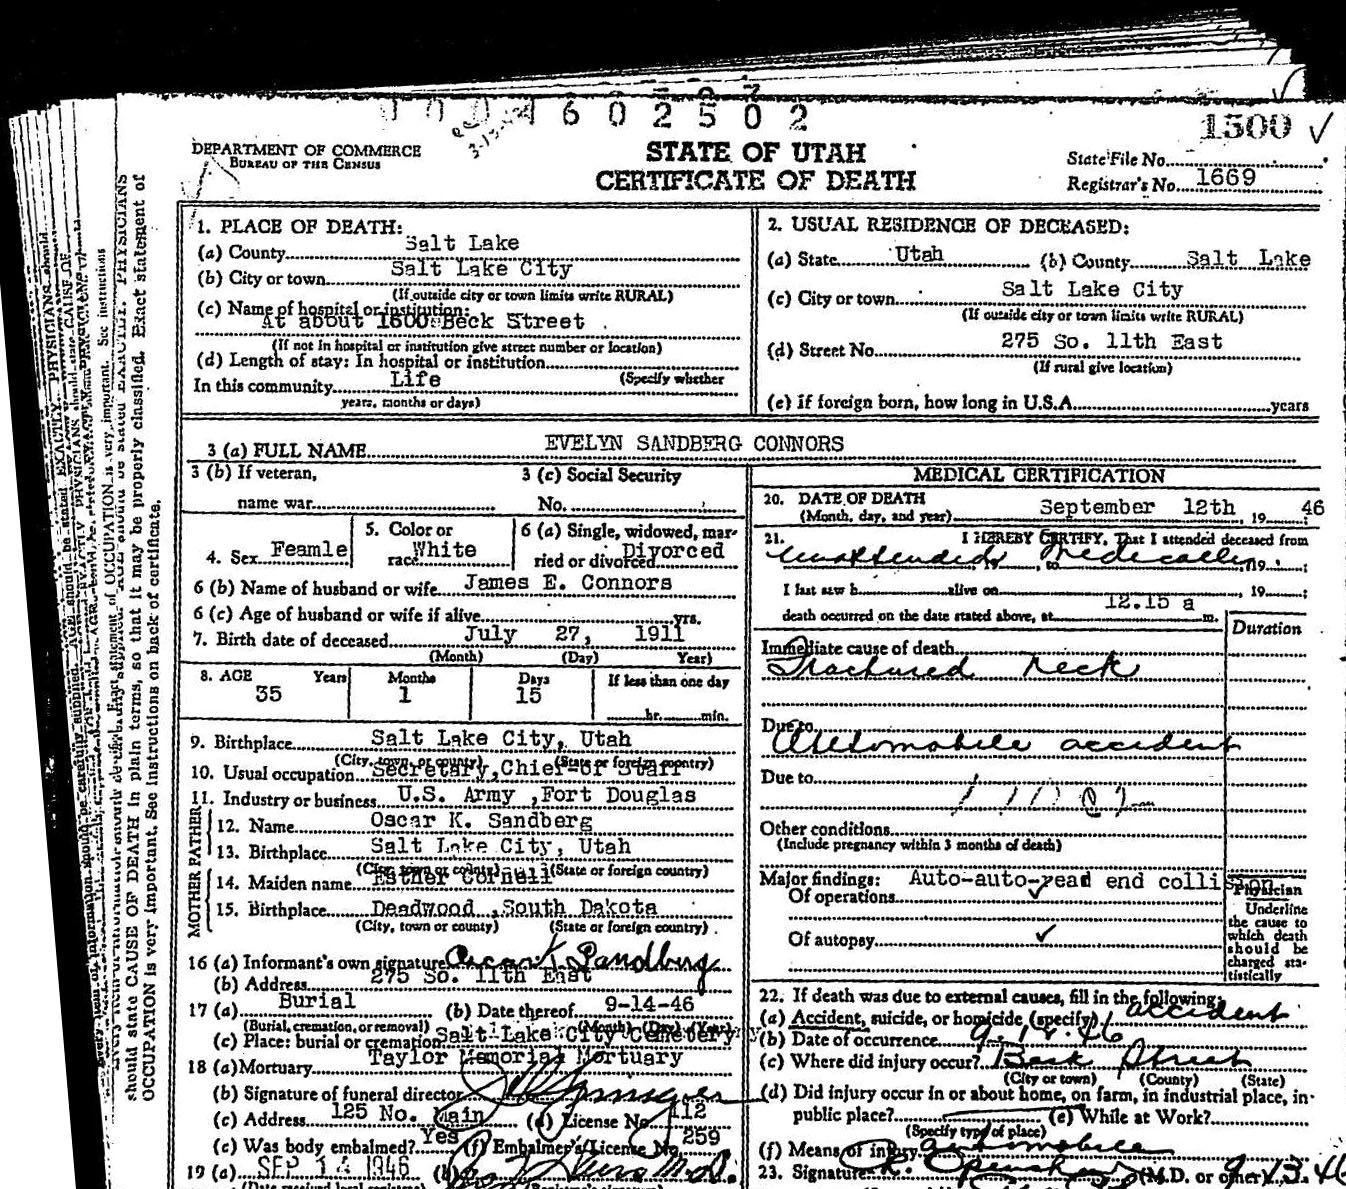 004602502
1500
DEPARTMENT OF COMMERCE
BUREAU OF THE CENSUS
STATE OF UTAH
CERTIFICATE OF DEATH
State File No.
Registrar's No. 1669
1. PLACE OF DEATH:
(a) County Salt Lake
(b) City or town Salt Lake City
(If outside city or town limits write RURAL)
(c) Name of hospital or institution:
At about 1600 Beck Street
(If not in hospital or institution give street number or location)
(d) Length of stay: In hospital or institution
In this community Life (Specify whether
years, months or days)
2. USUAL RESIDENCE OF DECEASED:
(a) State Utah (b) County Salt Lake
(c) City or town Salt Lake City
(If outside city or town limits write RURAL)
(d) Street No. 275 So. 11th East
(If rural give location)
(e) if foreign born, how long in U.S.A. years
3 (a) FULL NAME EVELYN SANDBERG CONNORS
3 (b) If veteran,
name war
3 (c) Social Security
No.
4. Sex Feamle
5. Color or
race White
6 (a) Single, widowed, mar-
ried or divorced Divorced
6 (b) Name of husband or wife James E. Connors
6 (c) Age of husband or wife if alive yrs.
7. Birth date of deceased July 27, 1911
(Month) (Day) Year)
8. AGE Years Months Days If less than one day
35 1 15
hr. min.
9. Birthplace Salt Lake City, Utah
(City, town, or county) (State or foreign country)
10. Usual occupation Secretary,Chief of Staff
11. Industry or business U.S. Army ,Fort Douglas
FATHER
12. Name Oscar K. Sandberg
13. Birthplace Salt Lake City, Utah
(City, town or county) (State or foreign country)
MOTHER
14. Maiden name Esther Cornell
15. Birthplace Deadwood ,South Dakota
(City, town or county) (State or foreign country)
16 (a) Informant's own signature Oscar K Sandberg
(b) Address 275 So. 11th East
17 (a) Burial (b) Date thereof 9-14-46
(Burial, cremation, or removal) (Month) (Day) (Year)
(c) Place: burial or cremation Salt Lake City Cemetery
18 (a) Mortuary Taylor Memorial Mortuary
(b) Signature of funeral director
(c) Address 125 No. Main (d) License No. 112
(c) Was body embalmed? Yes (f) Embalmer's License No. 259
19 (a) SEP 14 1946 (b) M.D.
MEDICAL CERTIFICATION
20. DATE OF DEATH
(Month, day, and year) September 12th, 19 46
21. I HEREBY CERTIFY, That I attended deceased from
Unattended, 19, to Medically, 19 ;
I last saw h alive on , 19 ;
death occurred on the date stated above, at 12.15 a m.
Duration
Immediate cause of death
Fractured neck
Due to
Automobile accident
Due to
Other conditions
(Include pregnancy within 3 months of death)
Major findings: Auto-auto-read end collision
Of operations
Of autopsy
Physician
Underline
the cause to
which death
should be
charged sta-
tistically
22. If death was due to external causes, fill in the following:
(a) Accident, suicide, or homicide (specify) accident
(b) Date of occurrence
(c) Where did injury occur? Beck Street
(City or town) (County) (State)
(d) Did injury occur in or about home, on farm, in industrial place, in
public place? (e) While at Work?
(Specify type of place)
(f) Means of injury automobile
23. Signature (M.D. or other) 9-13-46
should state CAUSE OF DEATH in plain terms, so that it may be properly classified. Exact statement of
OCCUPATION is very important. See instructions on back of certificate.